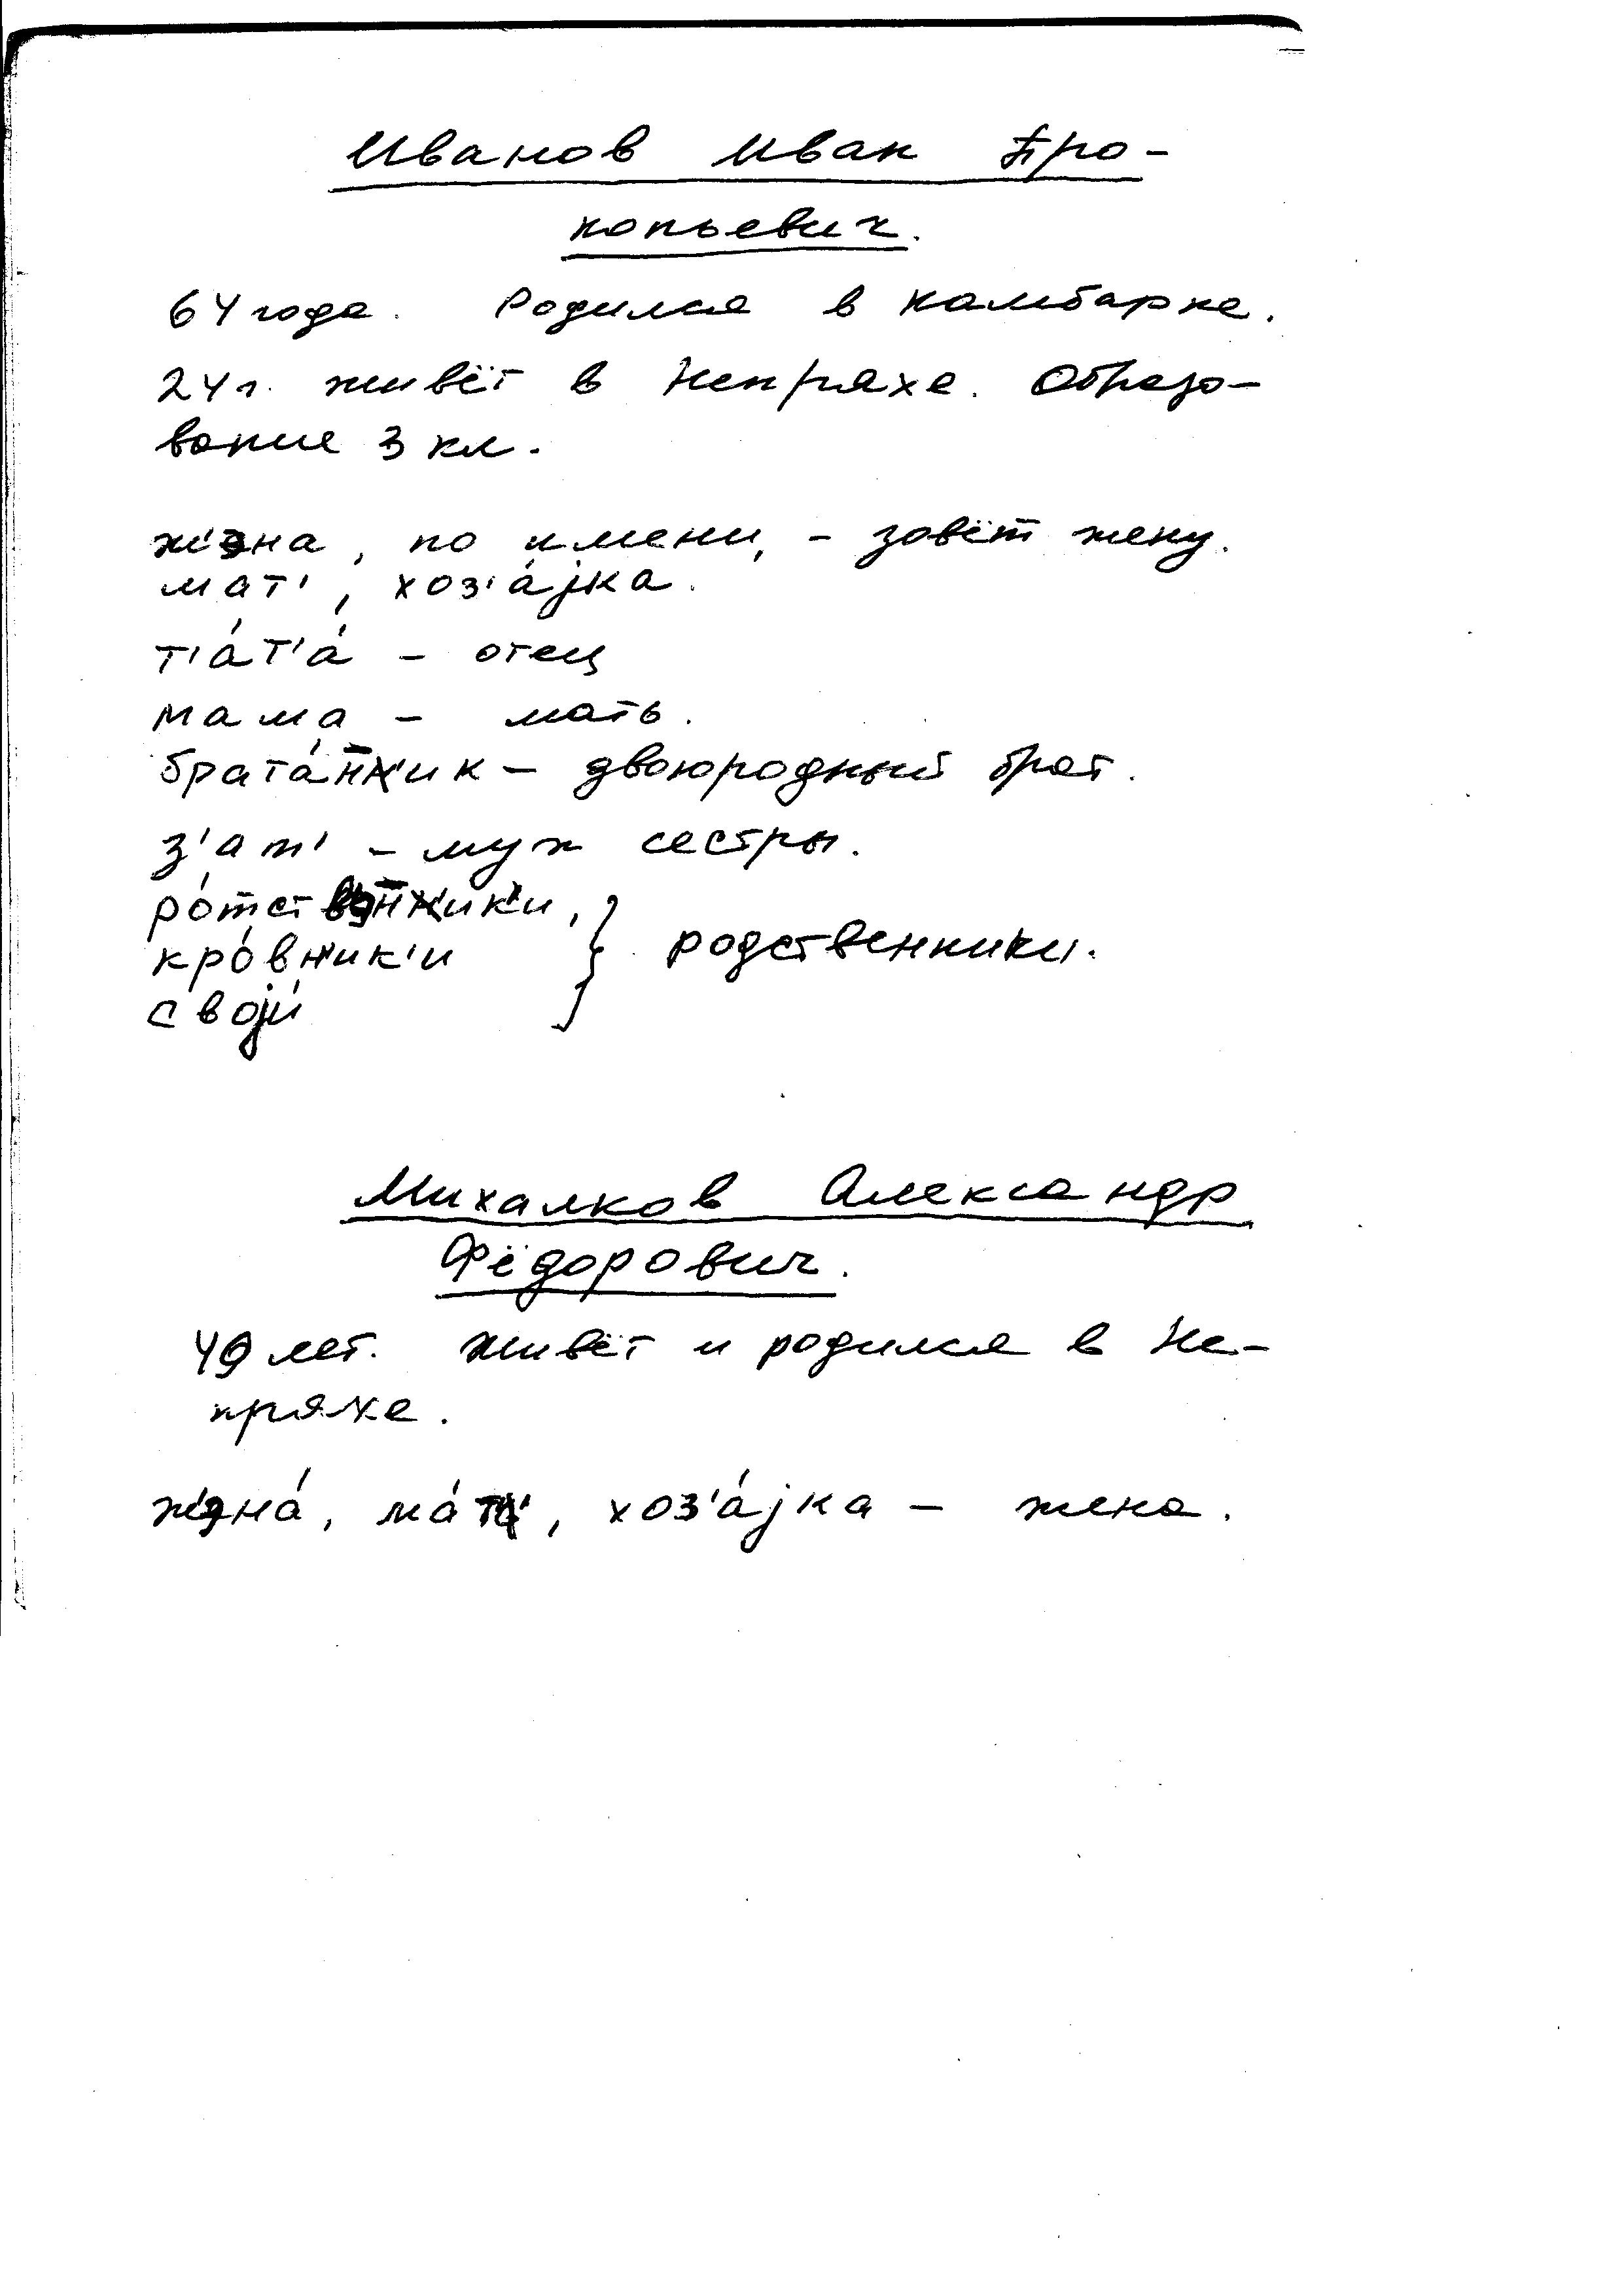 Иванов Иван Про-
копьевич.
64 года. Родился в Камбарке.
24 г. живёт в Непряхе. Образо-
вание 3 кл.
жэна, по имени, - зовёт жену.
мат', хоз'а́jка.
т'а́т'а́ - отец
мама - мать.
брата́н̄'ик - двоюродный брат.
з'ат' - муж сестры.
ро́тствэн̄'ик'и,
кро́вн'ик'и } родственники.
своjи́
Михалков Александр
Фёдорович.
49 лет. Живёт и родился в Не-
пряхе.
жэна́, ма́т', хоз'а́jка - жена.